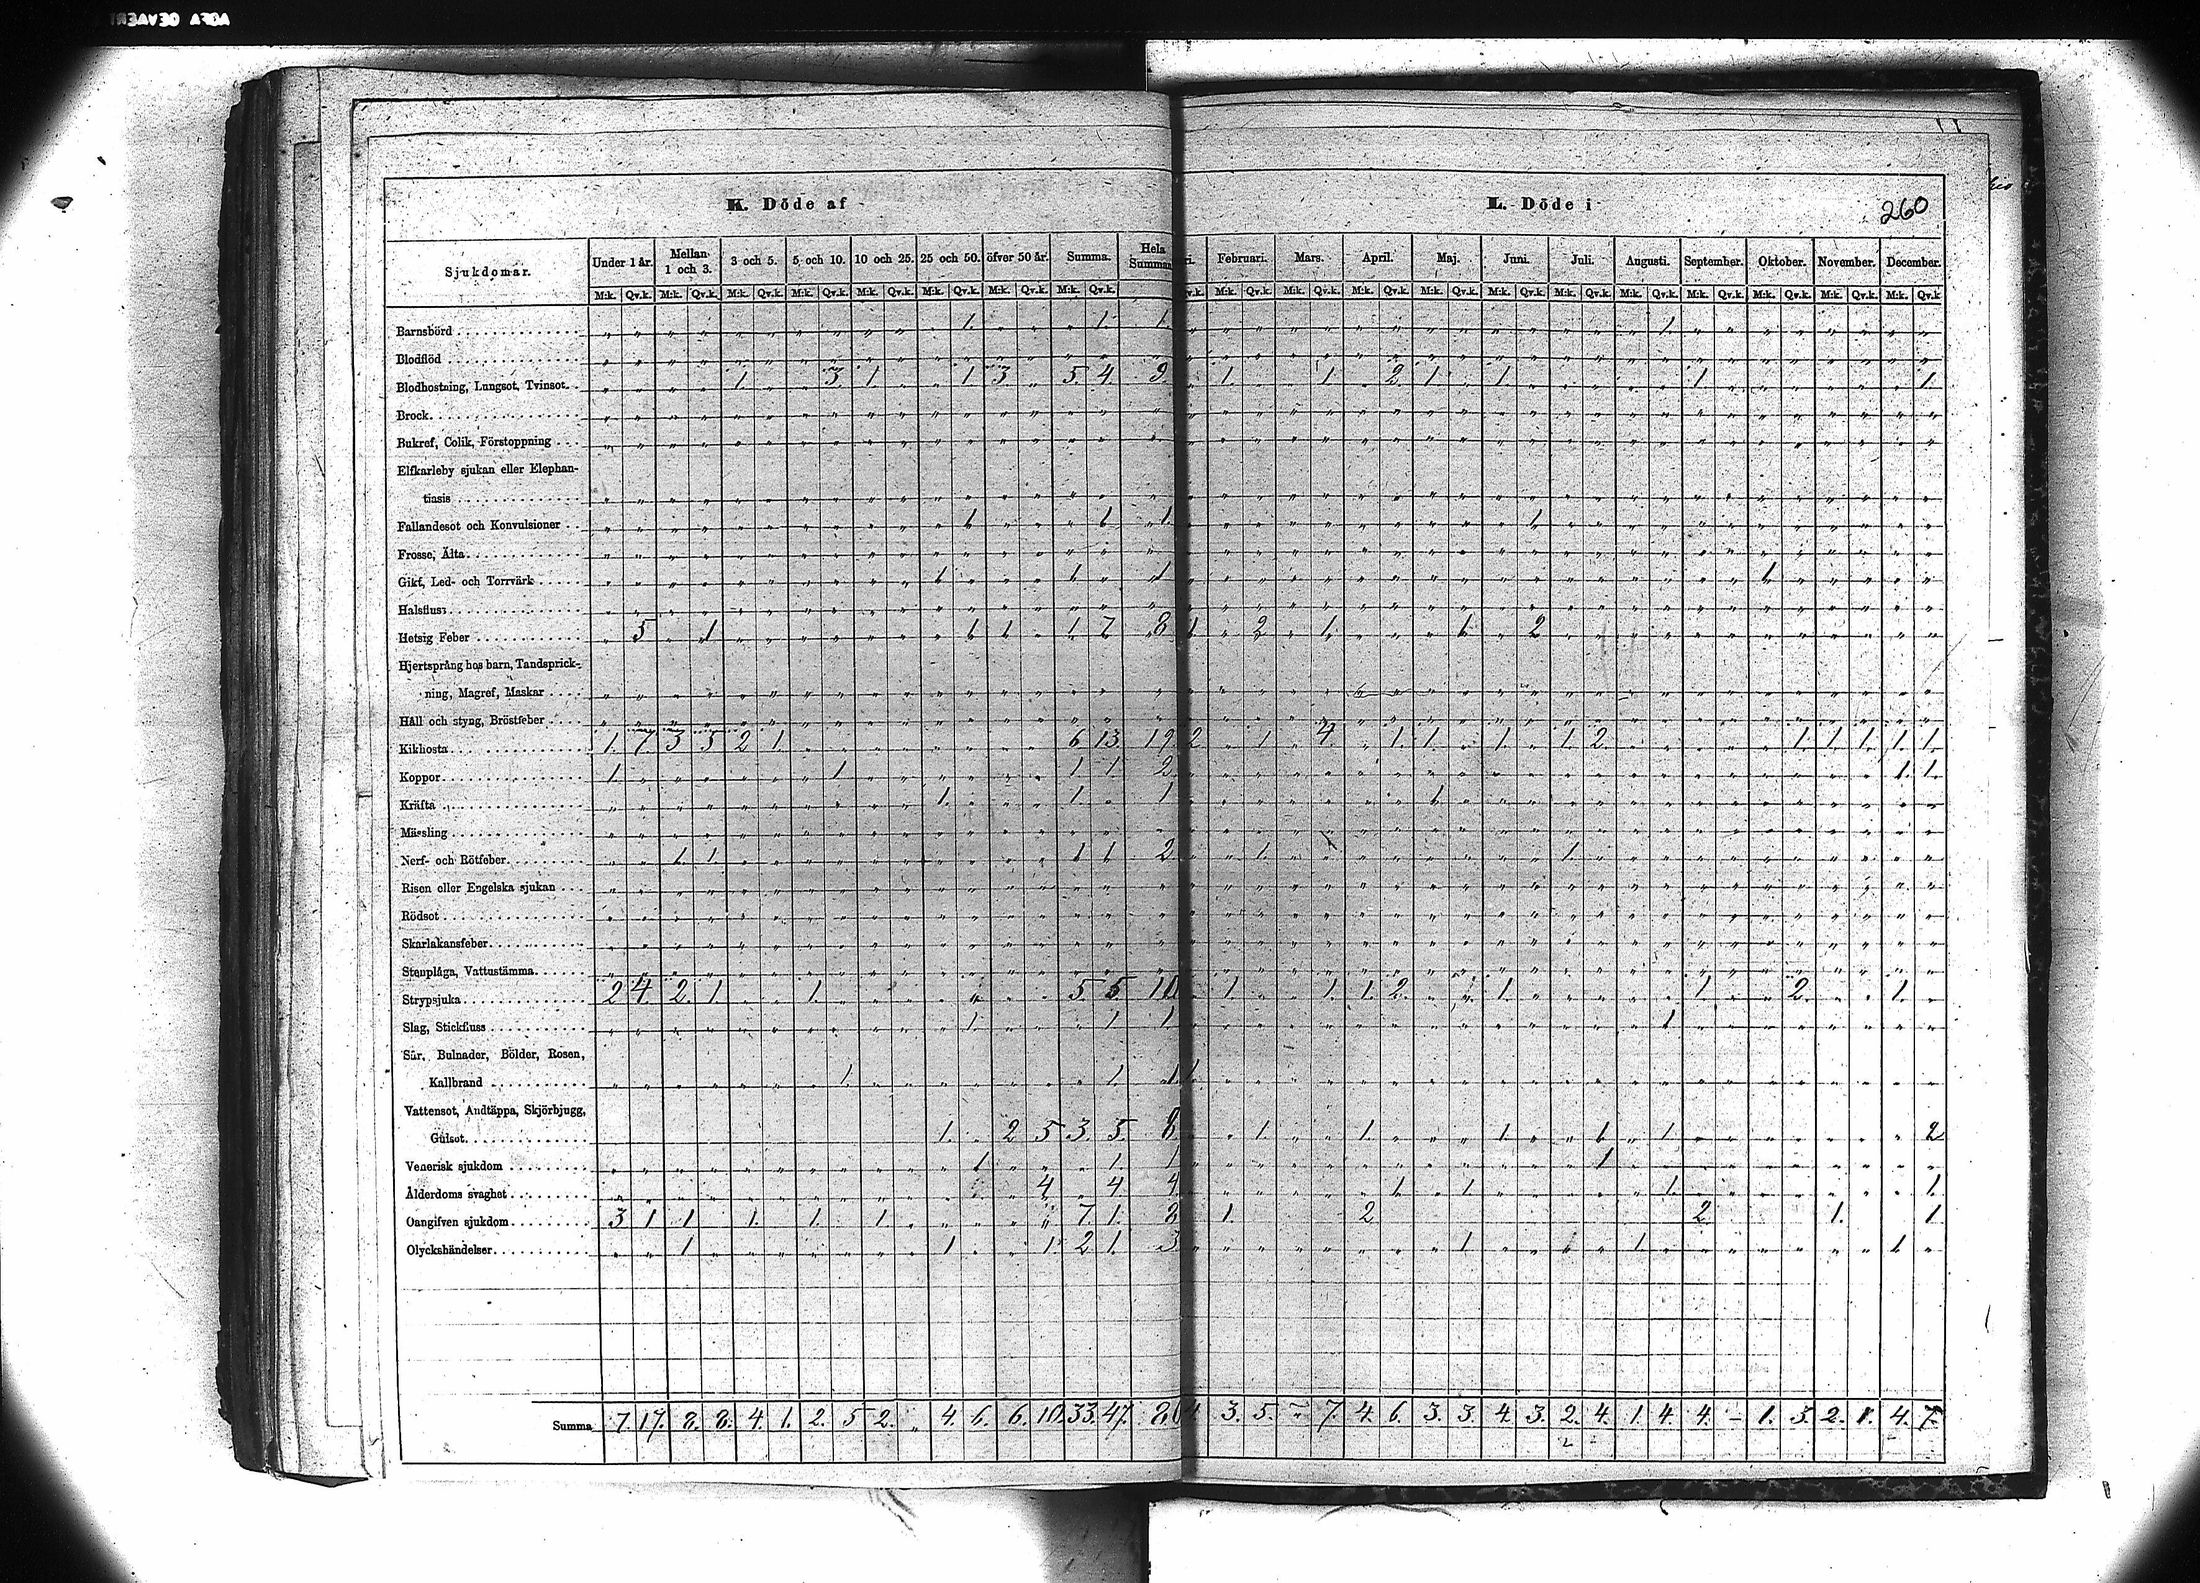 K. Döde af
L. Döde i
260
Sjukdomar.
Under 1 år. Mellan 1 och 3. 3 och 5. 5 och 10. 10 och 25. 25 och 50. öfver 50 år. Summa. Hela Summan
Februari. Mars. April. Maj. Juni. Juli. Augusti. September. Oktober. November. December.
M:k. Qv.k. M:k. Qv.k. M:k. Qv.k. M:k. Qv.k. M:k. Qv.k. M:k. Qv.k. M:k. Qv.k. M:k. Qv.k.
M:k. Qv.k. M:k. Qv.k. M:k. Qv.k. M:k. Qv.k. M:k. Qv.k. M:k. Qv.k. M:k. Qv.k. M:k. Qv.k. M:k. Qv.k. M:k. Qv.k. M:k. Qv.k
Barnsbörd 1. 1. 1. 1.
Blodflöd
Blodhostning, Lungsot, Tvinsot 1. 3 1 1 3 5. 4. 9. 1. 1. 2. 1 1. 1 1.
Brock
Bukref, Colik, Förstoppning
Elfkarleby sjukan eller Elephan-
tiasis
Fallandesot och Konvulsioner 1 1 1 1
Frosse, Älta
Gikt, Led- och Torrvärk 1 1 1 1
Halsfluss
Hetsig Feber 5 1 1 1 1 7 8 1 2 1 1 2
Hjertsprång hos barn, Tandsprick-
ning, Magref, Maskar
Håll och styng, Bröstfeber
Kikhosta 1. 7 3 5 2 1. 6 13. 19. 2 1. 4. 1. 1. 1. 1. 2. 1. 1. 1. 1. 1.
Koppor 1. 1 1 1 2. 1. 1.
Kräfta 1. 1. 1 1
Mässling
Nerf- och Rötfeber 1. 1. 1 1 2 1. 1.
Risen eller Engelska sjukan
Rödsot
Skarlakansfeber
Stenplåga, Vattustämma
Strypsjuka 2 4. 2. 1. 1. 5. 5. 10 1. 1. 1. 2. 1. 1 2. 1.
Slag, Stickfluss 1 1 1 1
Sår, Bulnader, Bölder, Rosen,
Kallbrand 1. 1. 1 1.
Vattensot, Andtäppa, Skjörbjugg,
Gulsot 1. 2 5 3. 5. 8 1. 1. 1. 1. 1. 2
Venerisk sjukdom 1 1. 1 1
Ålderdoms svaghet 4. 4. 4. 1. 1. 1. 1.
Oangifven sjukdom 3 1 1 1. 1. 1. 7. 1. 8 1. 2 2 1. 1
Olyckshändelser 1. 1. 1. 2 1. 3 1 1. 1
Summa 7. 17. 8. 8. 4. 1. 2. 5 2. 4. 6. 6. 10. 33. 47. 80 4. 3. 5. 7. 4. 6. 3. 3. 4. 3. 2. 4. 1. 4. 4. 1. 3. 2. 1. 4. 7.